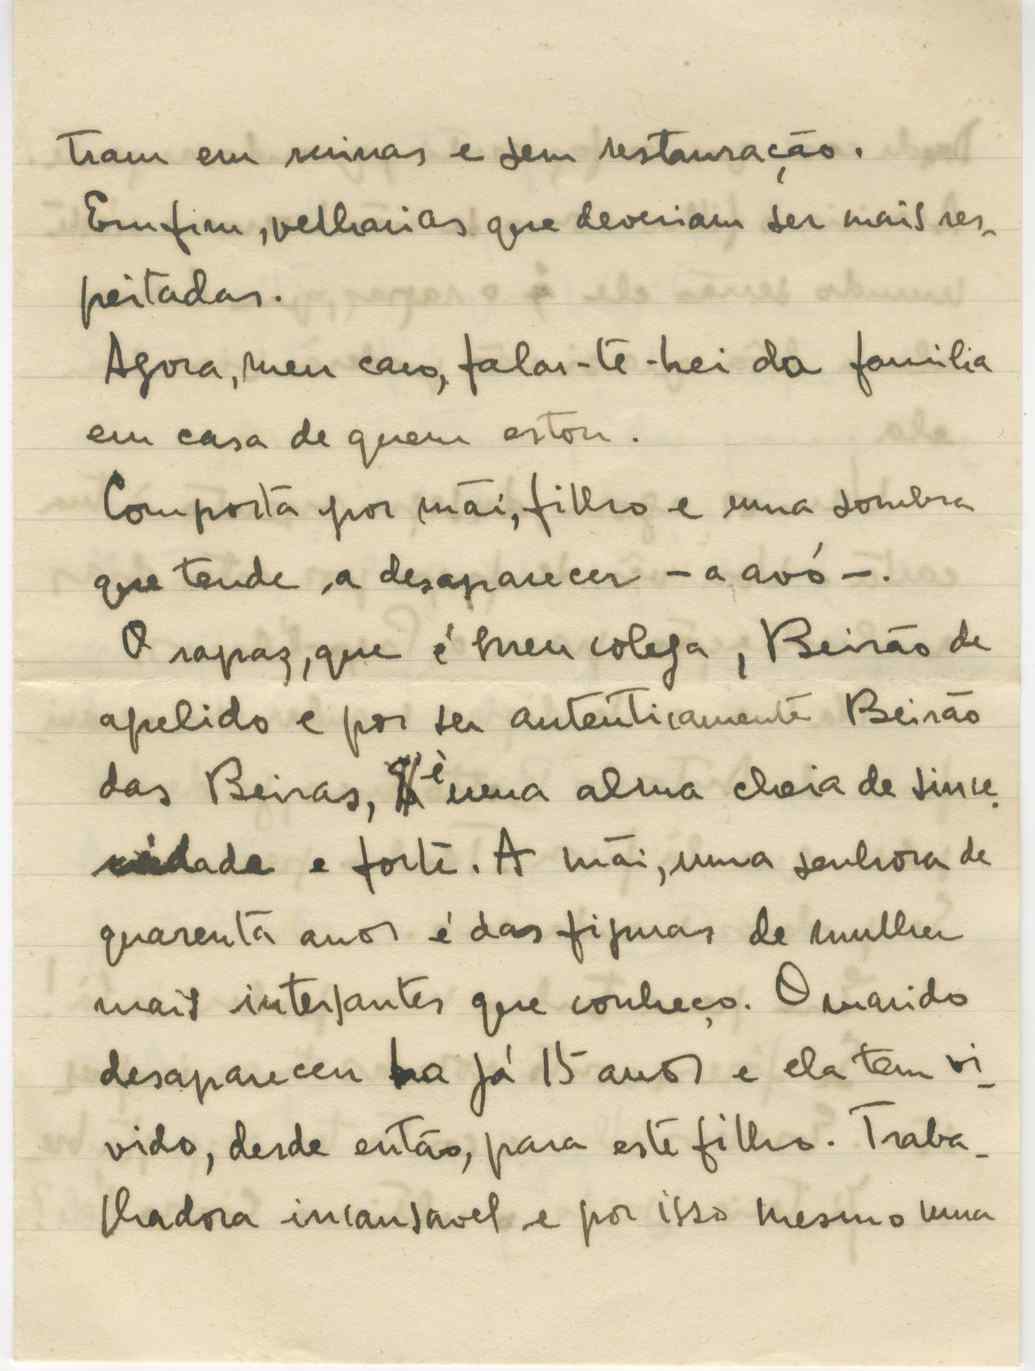 tram em ruinas e sem restauração.
Emfim, velharias que deveriam ser mais res-
peitadas.
Agora, meu caro, falar-te-hei da familia
em casa de quem estou.
Composta por mãi, filho e uma sombra
que tende a desaparecer - a avó -.
O rapaz, que é meu colega, Beirão de
apelido e por ser autenticamente Beirão
das Beiras, é uma alma cheia de since-
ridade e forte. A mãi, uma senhora de
quarenta anos é das figuras de mulher
mais interssantes que conheço. O marido
desapareceu ha já 15 anos e ela tem vi-
vido, desde então, para este filho. Traba-
lhadora incansavel e por isso mesmo uma